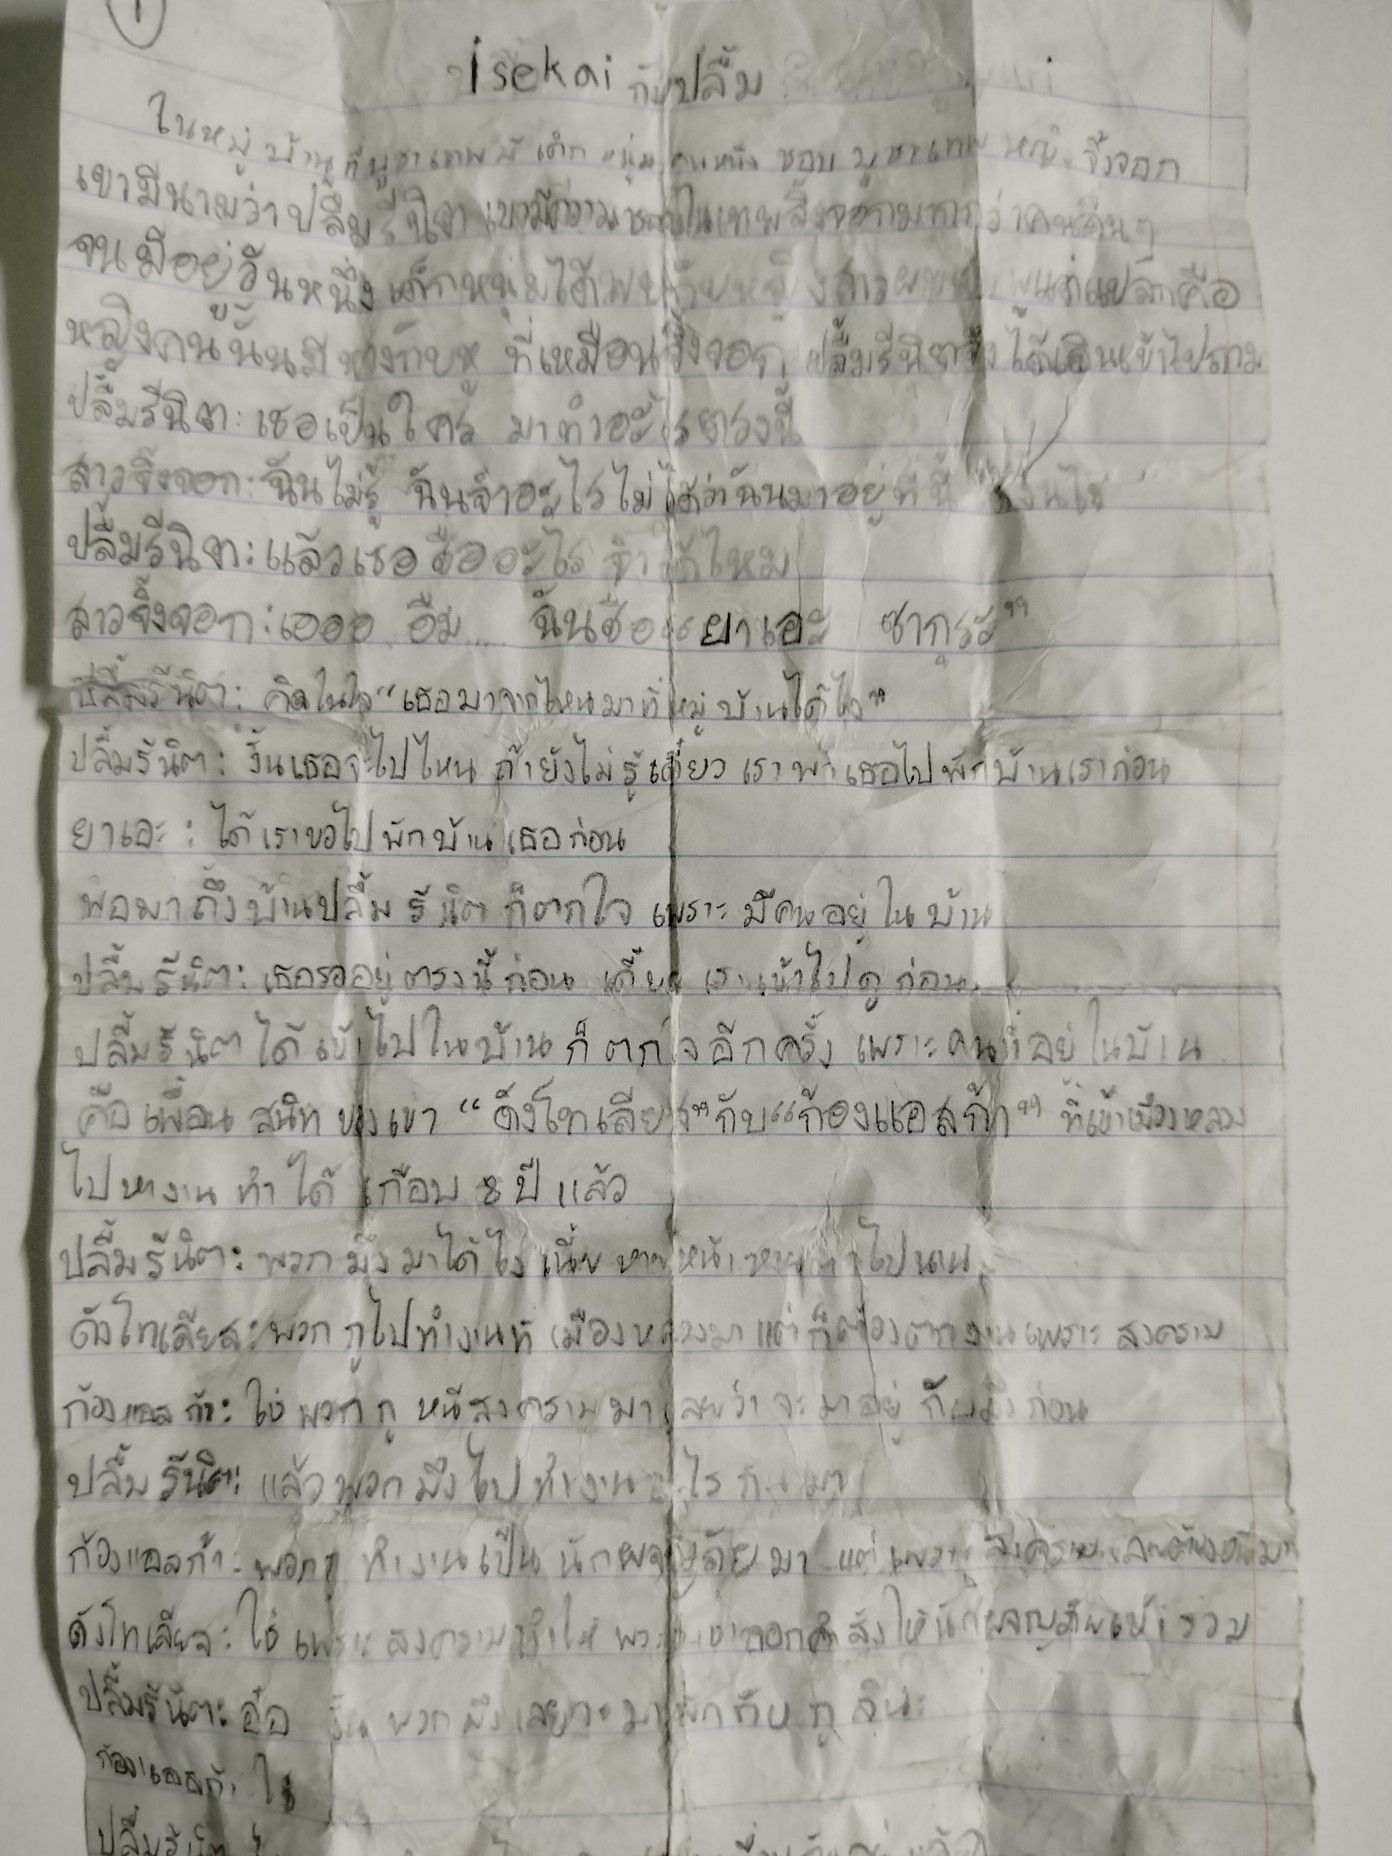 1
isekai กับปลื้ม
ในหมู่บ้านที่บูชาเทพมีเด็กหนุ่มคนหนึ่ง ชอบบูชาเทพหญิงจิ้งจอก
เขามีนามว่าปลื้มรีนิตา เขามีความ ในเทพจิ้งจอกมากกว่าคนอื่นๆ
จนมีอยู่วันหนึ่ง เด็กหนุ่มได้พบกับหญิงสาว แต่แปลกคือ
หญิงคนนั้นมีหางกับหู ที่เหมือนจิ้งจอก ปลื้มรีนิตาจึงได้เดินเข้าไปถาม
ปลื้มรีนิตา: เธอเป็นใคร มาทำอะไรตรงนี้
สาวจิ้งจอก: ฉันไม่รู้ ฉันจำอะไรไม่ได้ว่าฉันมาอยู่ที่นี้
ปลื้มรีนิตา: แล้วเธอชื่ออะไร จำได้ไหม
สาวจิ้งจอก: เอออ อืม... ฉันชื่อ "ยาเอะ ซากุระ"
ปลื้มรีนิตา: คิดในใจ "เธอมาจากไหนมาที่หมู่บ้านได้ไง"
ปลื้มรีนิตา: งั้นเธอจะไปไหน ถ้ายังไม่รู้เดี๋ยว เราพาเธอไปพักบ้านเราก่อน
ยาเอะ: ได้ เราขอไปพักบ้านเธอก่อน
พอมาถึงบ้านปลื้มรีนิตา ก็ตกใจ เพราะ มีคนอยู่ในบ้าน
ปลื้มรีนิตา: เธอรออยู่ตรงนี้ก่อน เดี๋ยว เราเข้าไปดูก่อน
ปลื้มรีนิตาได้เข้าไปในบ้าน ก็ตกใจอีกครั้ง เพราะคนที่อยู่ในบ้าน
คือเพื่อน สนิท ของเขา "ดังไทเลียจ" กับ "ก้องแอสก้า" ที่เข้าเมืองหลวง
ไปหางานทำได้ เกือบ 8 ปี แล้ว
ปลื้มรีนิตา: พวกมึงมาได้ไงเนี้ย หายหน้าหายตาไปนาน
ดังไทเลียจ: พวกกูไปทำงานที่เมืองหลวงมา แต่ก็ต้องตกงานเพราะ สงคราม
ก้องแอสก้า: ใช่ พวกกู หนีสงครามมา เลยว่า จะมาอยู่ กับมึงก่อน
ปลื้มรีนิตา: แล้วพวกมึงไปทำงานอะไร กันมา
ก้องแอสก้า: พวกกู ทำงานเป็น นักผจญภัยมา แต่เพราะ สงคราม
ดังไทเลียจ: ใช่ เพราะ สงครามทำให้ พวก ออกคำสั่งให้นักผจญภัยเข้าร่วม
ปลื้มรีนิตา: อ๋อ งั้น พวกมึง มาพักกับกู
ก้องแอสก้า: ใช่
ปลื้มรีนิตา: